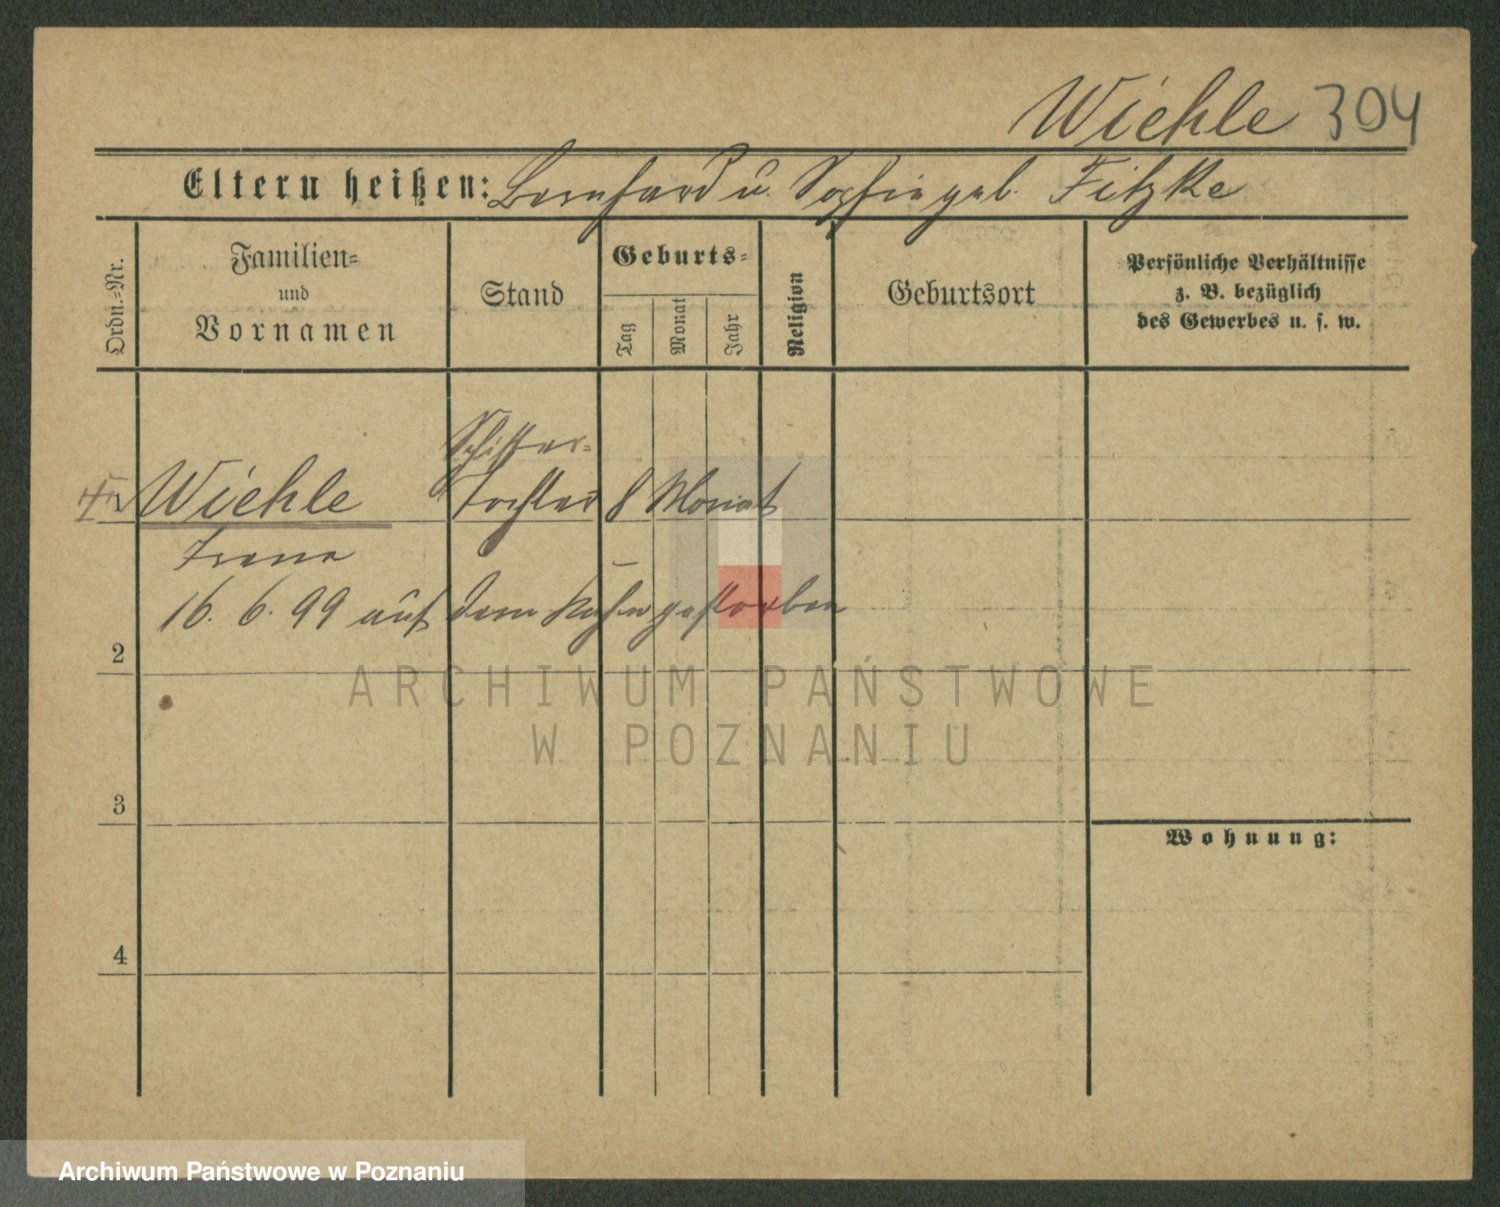 Wiehle 304
Eltern heißen: Bernhard u. Sophie geb. Fitzke
Ordn.-Nr.
Familien-
und
Vornamen
Stand
Geburts-
Tag
Monat
Jahr
Religion
Geburtsort
Persönliche Verhältnisse
z. B. bezüglich
des Gewerbes u. s. w.
Schiffer-
Wiehle Tochter 8 Monat
Irene
16. 6. 99 auf dem Kahn gestorben
2
ARCHIWUM PAŃSTWOWE
W POZNANIU
3
Wohnung:
4
Archiwum Państwowe w Poznaniu